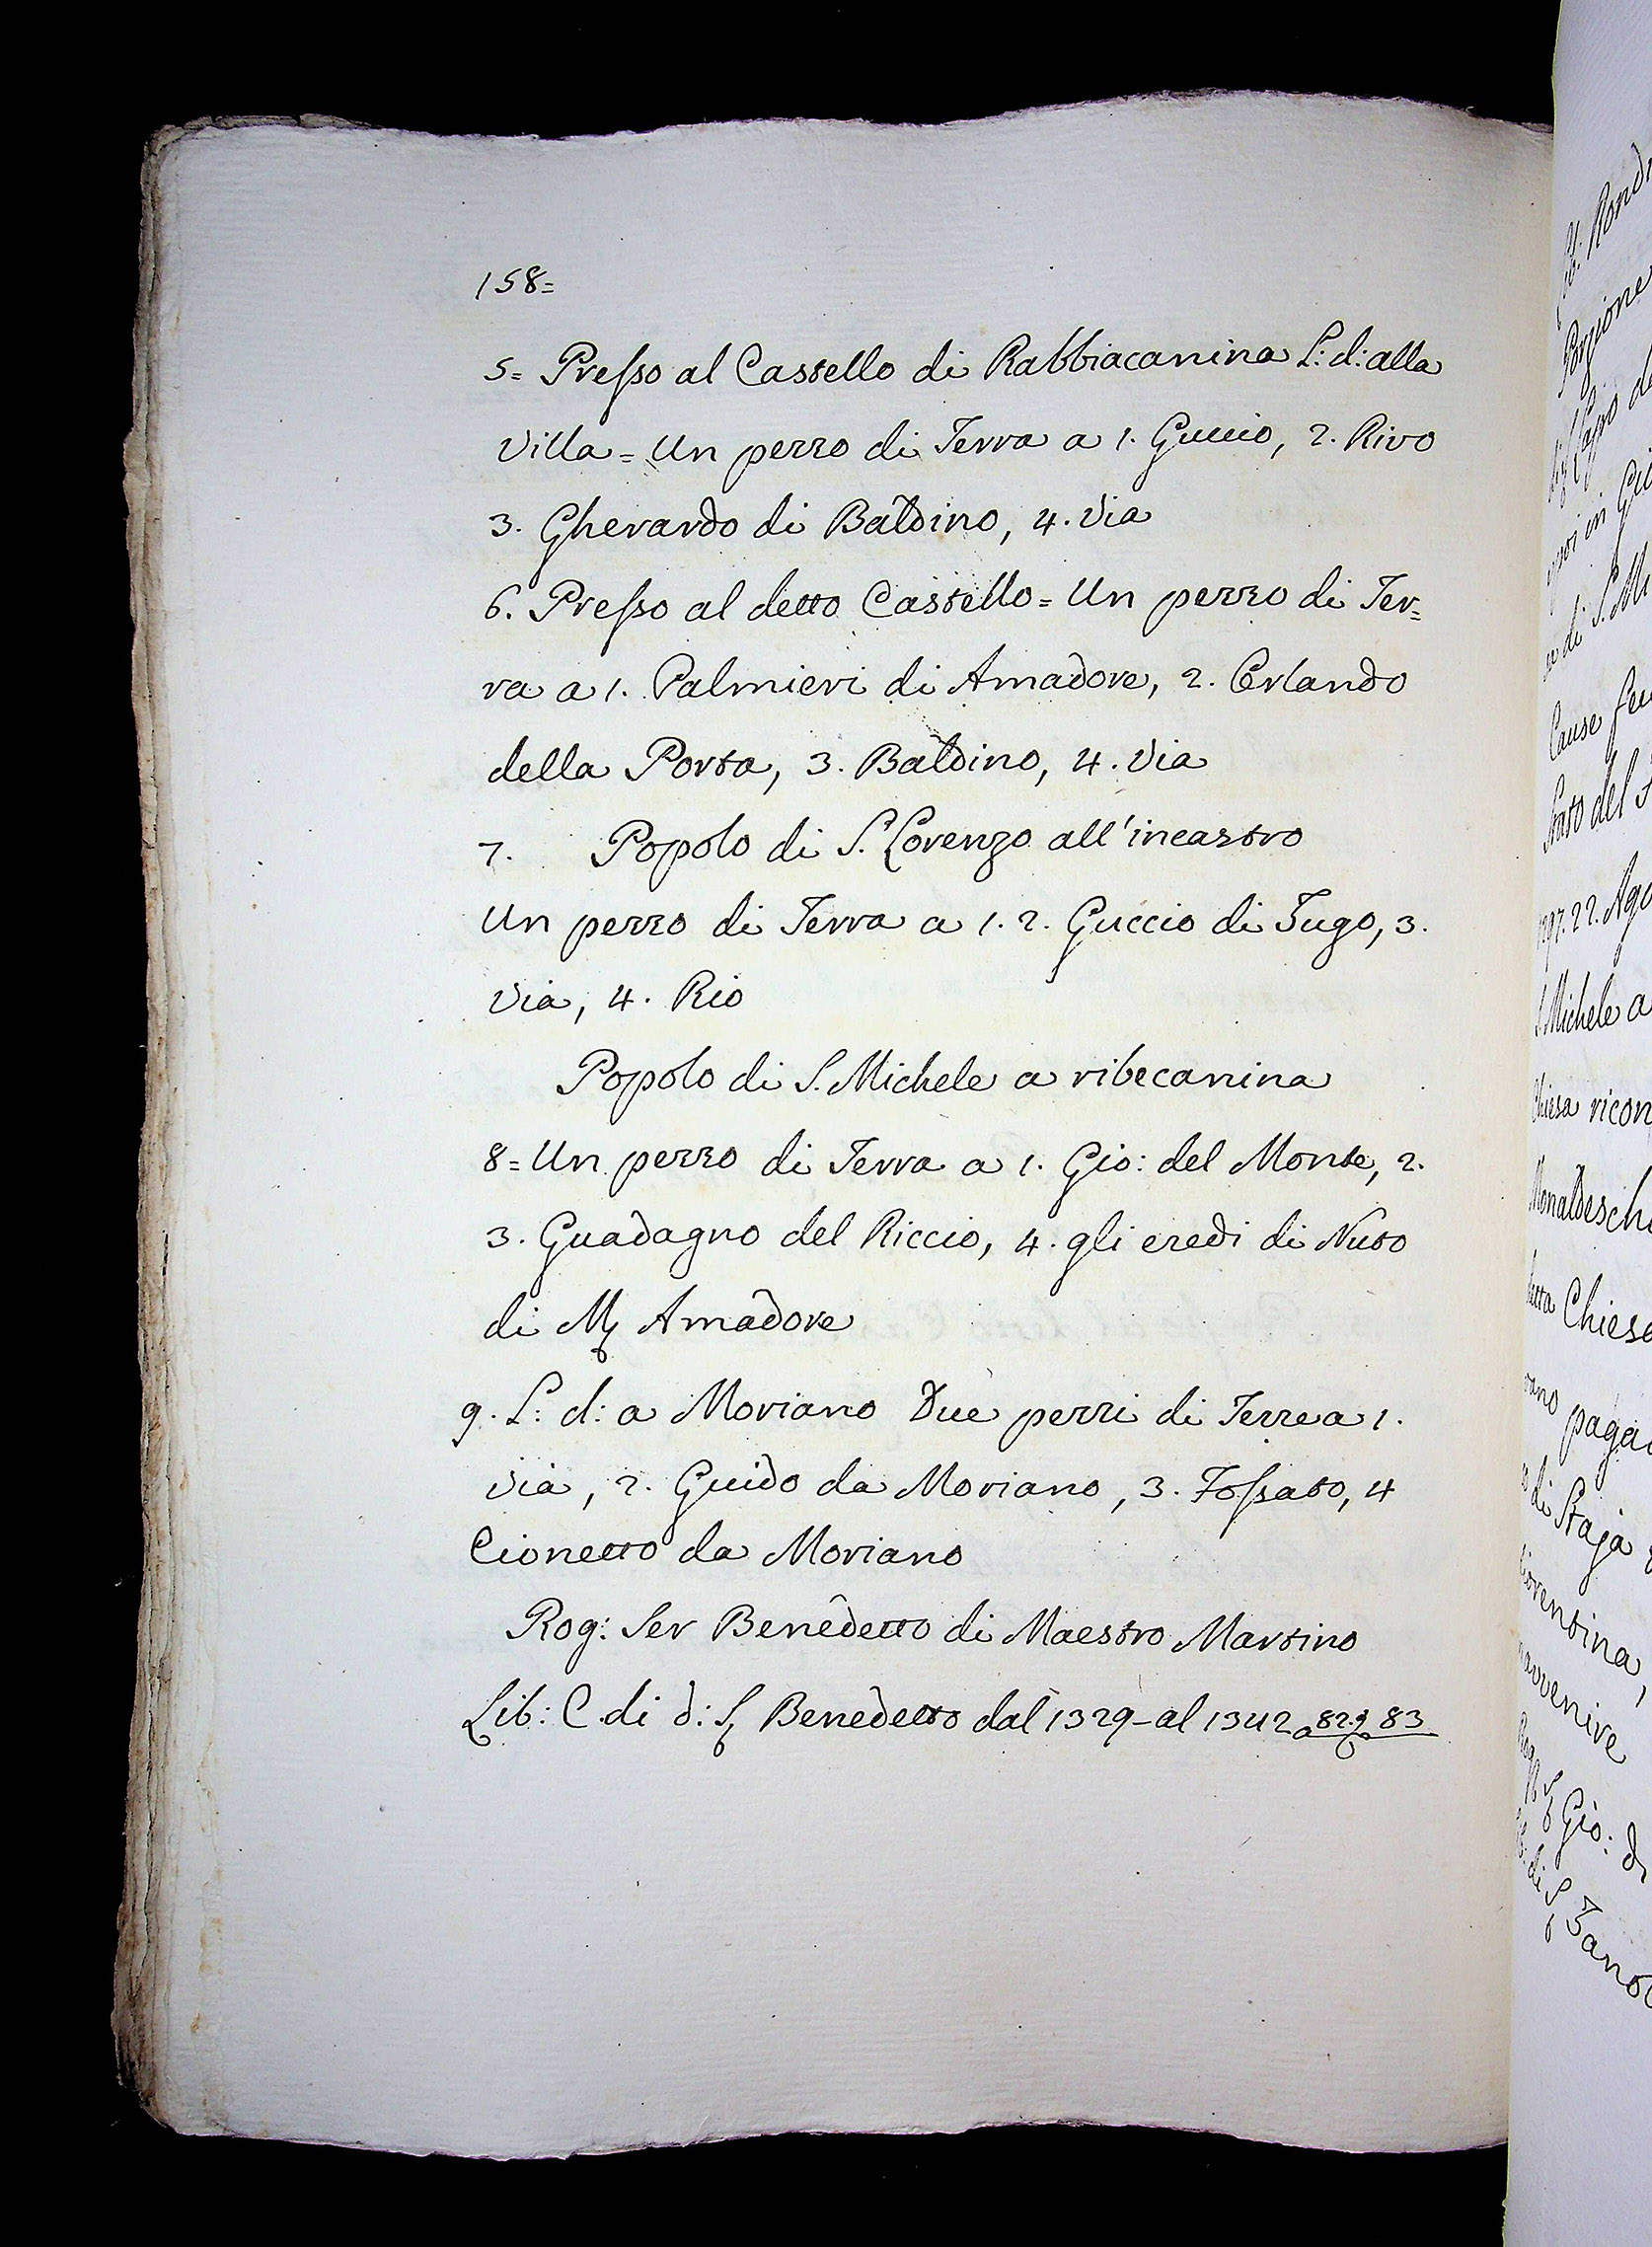 158=
5= Presso al Castello di Rabbiacanina L: d: alla
Villa = Un pezzo di Terra a 1. Guccio, 2. Rivo
3. Gherardo di Baldino, 4. Via
6. Presso al detto Castello = Un pezzo di Ter=
ra a 1. Palmieri di Amadore, 2. Orlando
della Porta, 3. Baldino, 4. Via
7. Popolo di S. Lorenzo all'incastro
Un pezzo di Terra a 1. 2. Guccio di Tugo, 3.
Via, 4. Rio
Popolo di S. Michele a ribecanina
8= Un pezzo di Terra a 1. Gio: del Monte, 2.
3. Guadagno del Riccio, 4. gli eredi di Nuto
di M Amadore
9. L: d: a Moriano Due pezzi di Terre a 1.
Via, 2. Guido da Moriano, 3. Fossato, 4
Cionetto da Moriano
Rog: Ser Benedetto di Maestro Martino
Lib: C di d: S Benedetto dal 1329 - al 1342 a 82. 83
Porzione
in
di S. Mi
Cause
del
22. Ago
S. Michele a
Chiesa ricon
Monaldesch
detta Chiesa
paga
di Staja
avvenire
Gio: di
di S